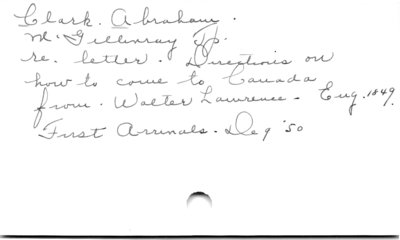 Clark. Abraham.
McGillivray Tp.
re. letter. Directions on
how to come to Canada
from. Walter Lawrence - Eng. 1849.
First Arrivals. Deq '50